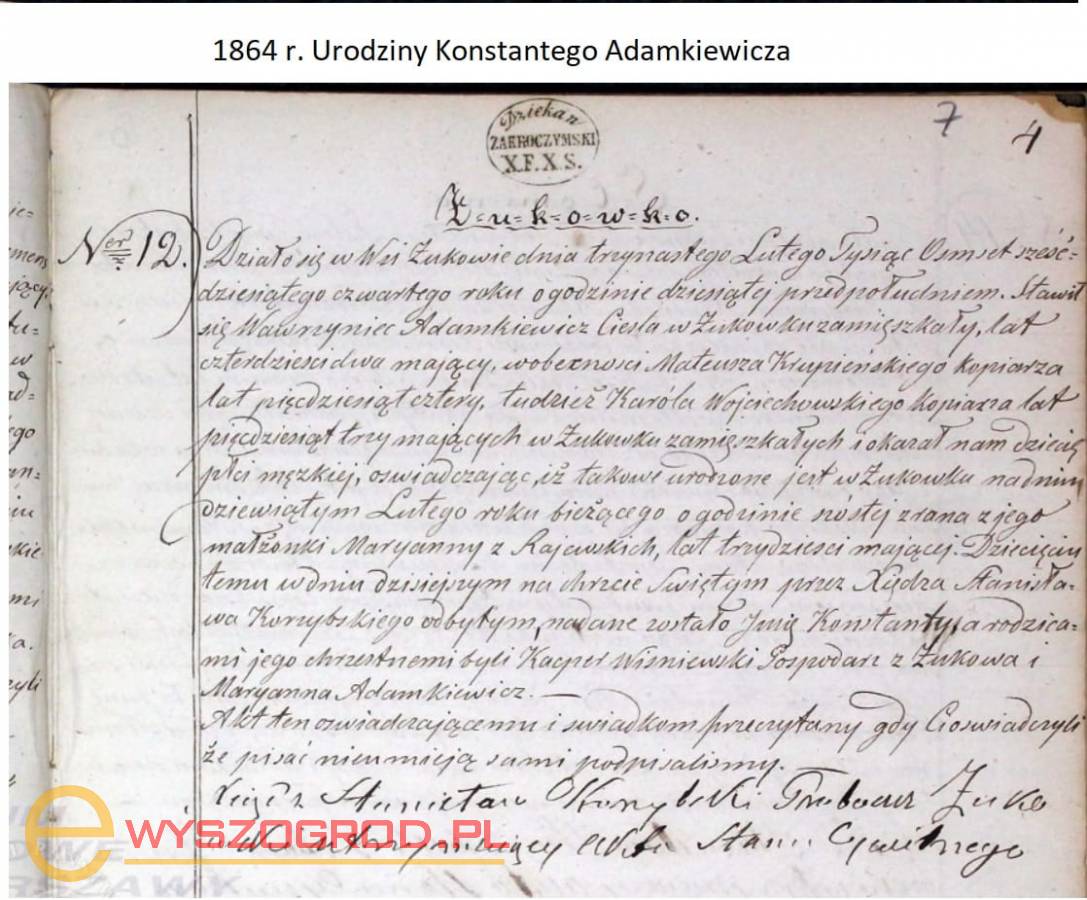 1864 r. Urodziny Konstantego Adamkiewicza
7
4
Dziekan
ZAKROCZYMSKI
X.F.X.S.
Ż=u=k=o=w=k=o.
Ner 12.
Działo się w Wsi Żukowie dnia trzynastego Lutego Tysiąc Osmset sześć=
dziesiątego czwartego roku o godzinie dziesiątej przedpołudniem. Stawił
się Wawrzyniec Adamkiewicz Ciesla w Żukowku zamięszkały, lat
czterdziesci dwa mający, w obecnosci Mateusza Krupieńskiego Kopiarza
lat pięcdziesiąt cztery, tudzież Karóla Wojciechowskiego Kopiarza lat
pięcdziesiąt trzy mających w Żukowku zamięszkałych i okazał nam dziecię
płci męzkiej, oswiadczając, iż takowe urodzone jest w Żukowku na dniu
dziewiątym Lutego roku bieżącego o godzinie szóstej z rana z jego
małżonki Maryanny z Rajewskich, lat trzydziesci mającej. Dziecięciu
temu w dniu dzisiejszym na chrzcie Swiętym przez Xiędza Stanisła=
wa Korzybskiego odbytym, nadane zostało Jmię Konstanty, a rodzica=
mi jego chrzestnemi byli Kacper Wiśniewski Gospodarz z Żukowa i
Maryanna Adamkiewicz. —
Akt ten oswiadczającemu i swiadkom przeczytany gdy Ci oswiadczyli
że pisać nieumieją sami podpisalismy. —
Xiądz Stanisław Korzybski Proboszcz Żuko
wski utrzymujący Akta Stanu Cywilnego
eWYSZOGROD.PL